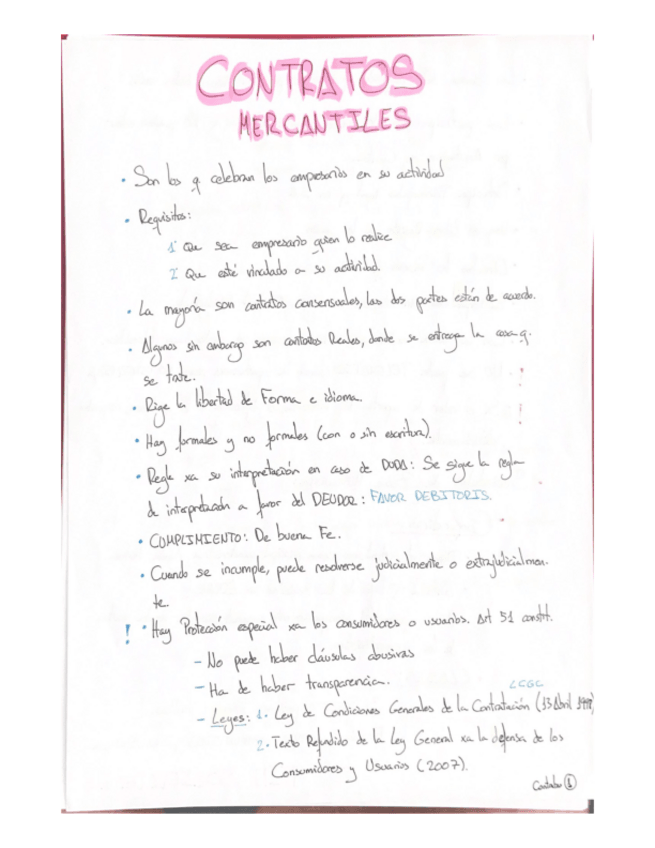 CONTRATOS
MERCANTILES
• Son los q celebran los empresarios en su actividad
• Requisitos:
1º Que sea empresario quien lo realice
2º Que esté vinculado a su actividad.
• La mayoría son contratos consensuales, las dos partes están de acuerdo.
• Algunos sin embargo son contratos Reales, donde se entrega la cosa q.
se trate.
• Rige la libertad de Forma e idioma.
• Hay formales y no formales (con o sin escritura).
• Regla xa su interpretación en caso de DUDA: Se sigue la regla
de interpretación a favor del DEUDOR: FAVOR DEBITORIS.
• CUMPLIMIENTO: De buena Fe.
• Cuando se incumple, puede resolverse judicialmente o extrajudicialmen-
te.
! • Hay Protección especial xa los consumidores o usuarios. Art 51 constit.
- No puede haber cláusulas abusivas
- Ha de haber transparencia.
LCGC
- Leyes: 1. Ley de Condiciones Generales de la Contratación (13 Abril 1998)
2. Texto Refundido de la Ley General xa la defensa de los
Consumidores y Usuarios (2007).
①